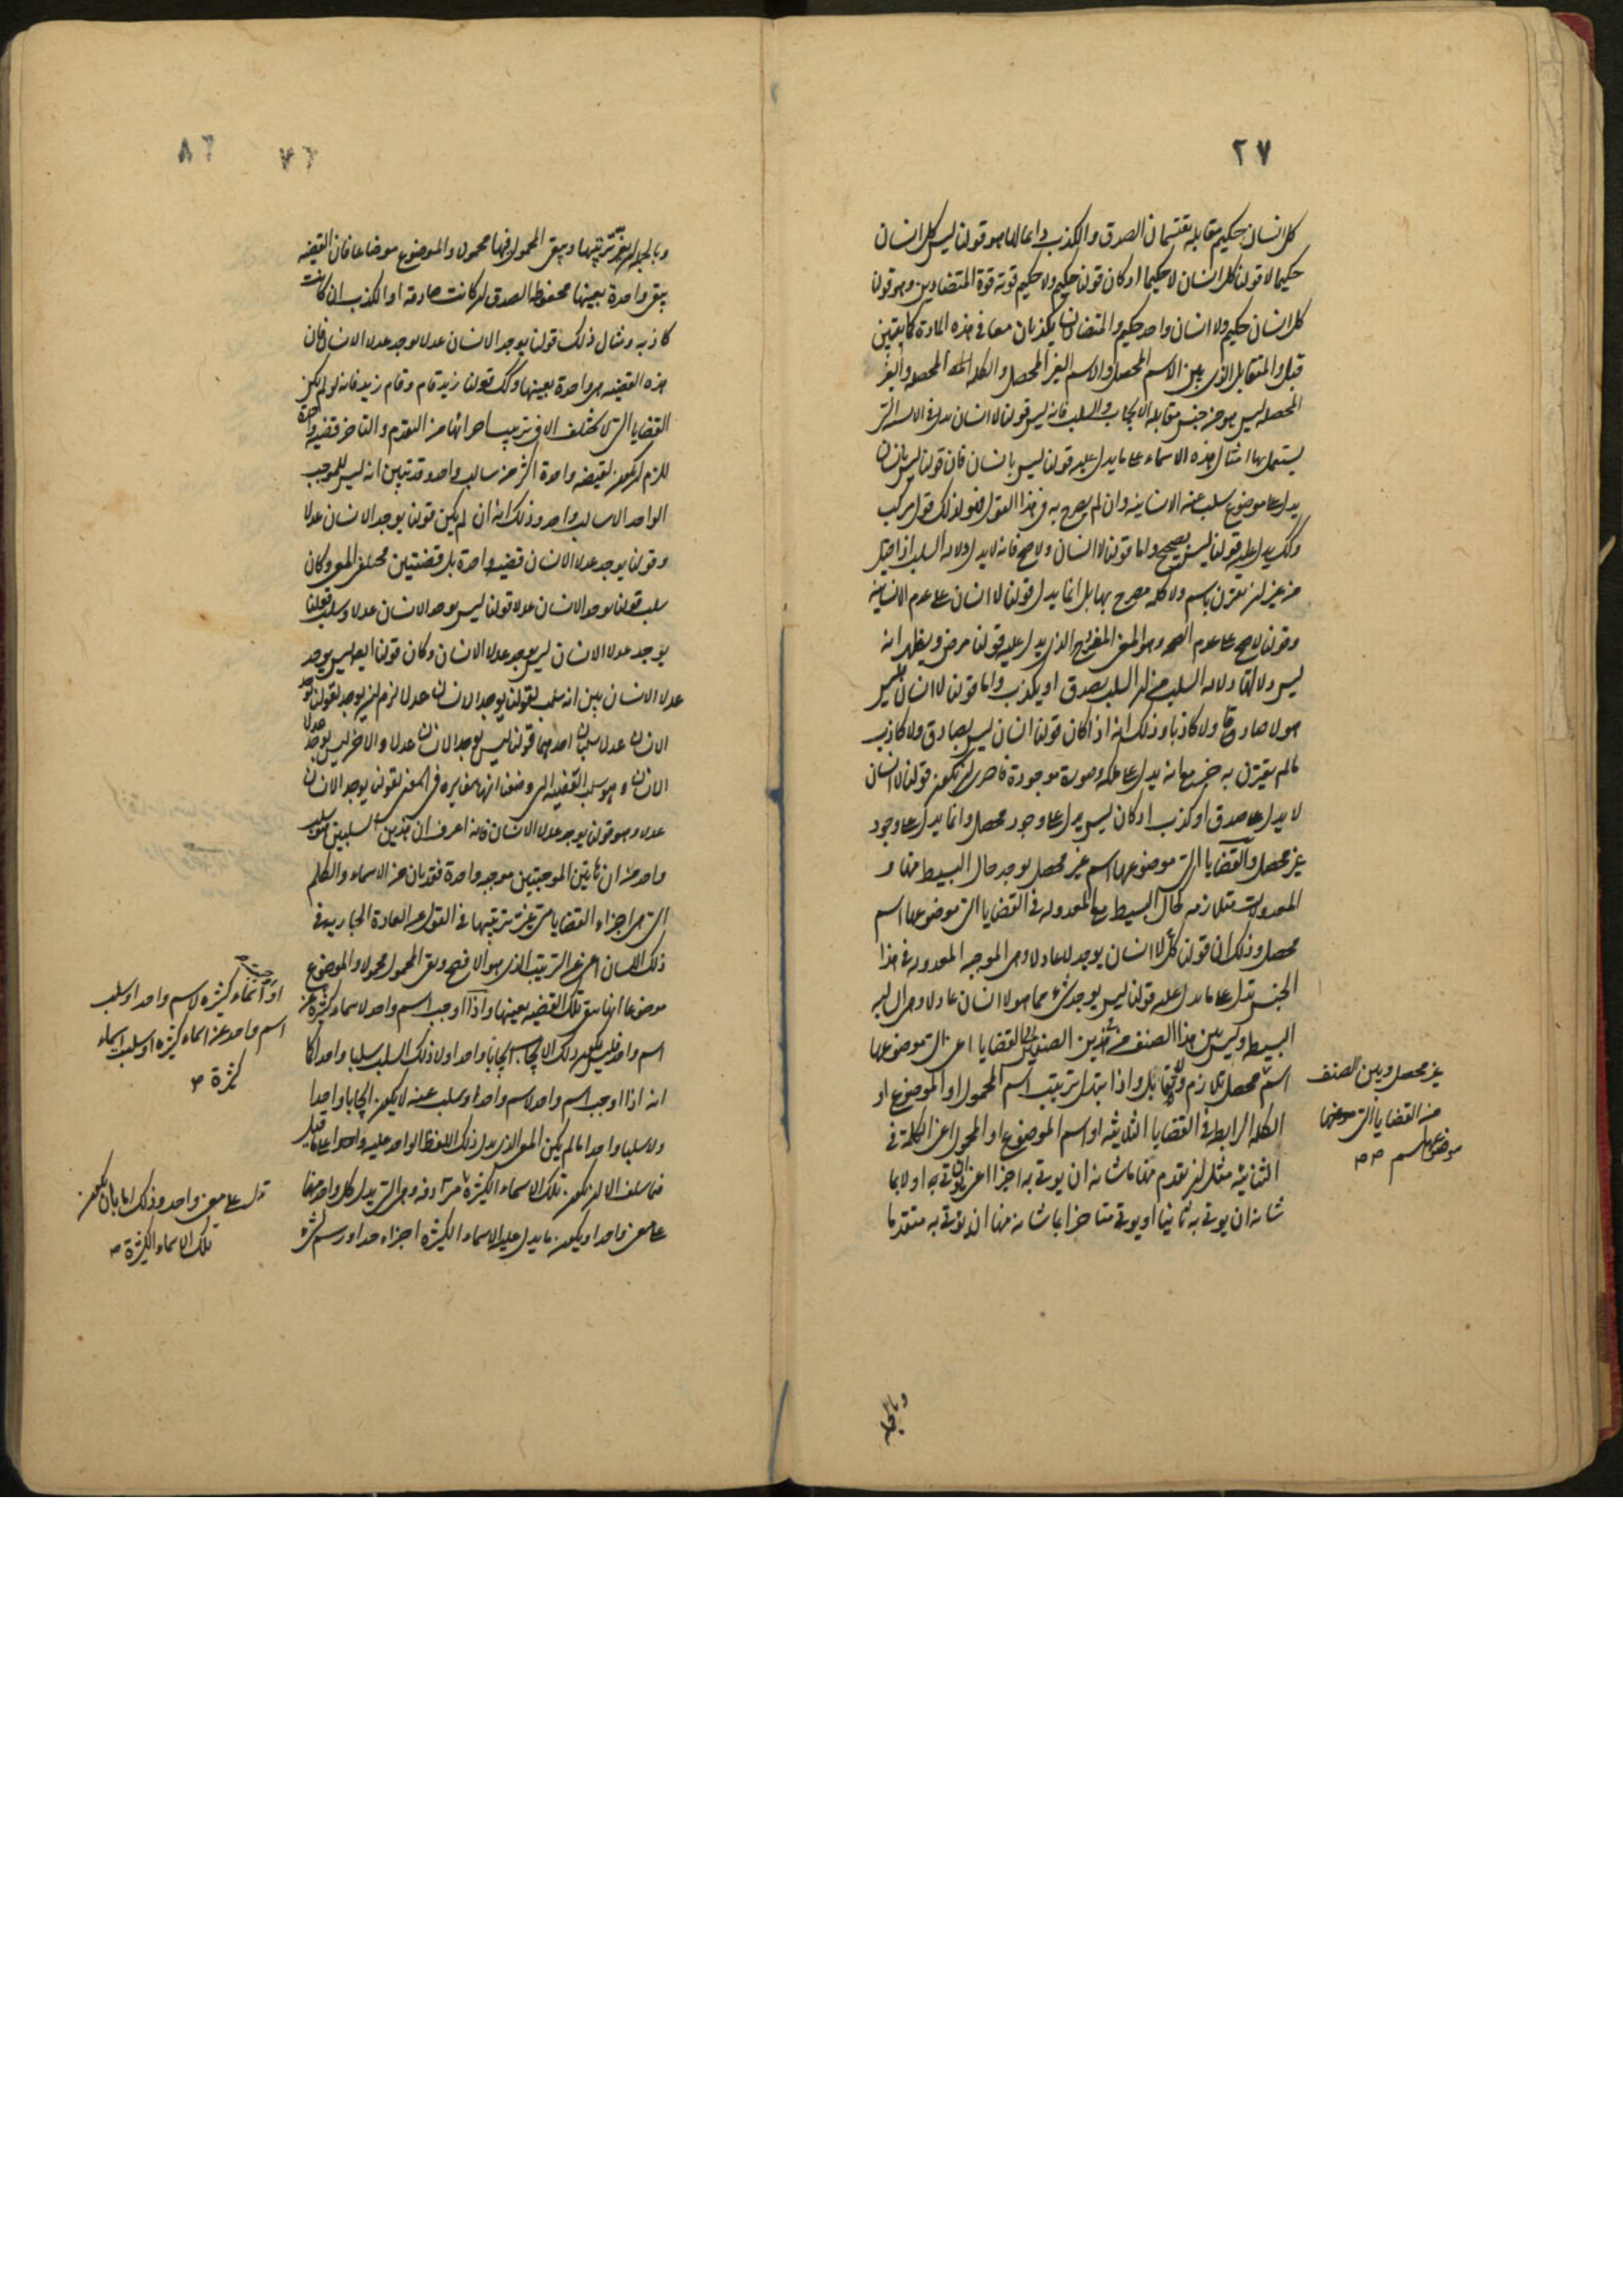 ٢٧
كل انسان حكيم مقابله يقتسمان الصدق والكذب دايما انما هو قولنا ليس كل انسان
حكيما لا قولنا كل انسان لا حكيما اذ كان قولنا حكيم ولا حكيم قوته قوة المتضادين وهو قولنا
كل انسان حكيم ولا انسان واحد حكيم والمتضادان يكذبان معا في هذه المادة كما تبين
قبل والتقابل الذي بين الاسم المحصل والاسم الغير المحصل والكلمة المحصلة والغير
المحصله ليس هو من جنس مقابله الايجاب والسلب فانه ليس قولنا لا انسان يدل في الالسنة التي
يستعمل بها امثال هذه الاسماء على ما يدل عليه قولنا ليس بانسان فان قولنا ليس بانسان
يدل على موضوع سلب عنه الانسانيه وان لم يصرح به في هذا القول فهو لذلك قول مركب
وكذلك يدل عليه قولنا ليس بصحيح واما قولنا لا انسان ولا صح فانه لا يدل دلالة السلب اذا قيل
من غير ان يقرن باسم ولا كلمه مصرح بها بل انما يدل قولنا لا انسان على عدم الانسانيه
وقولنا لا صح على عدم الصحه وهو المعنى المفرد الذي يدل عليه قولنا مرض ويظهر انه
ليس دلالتها دلالة السلب من ان السلب يصدق او يكذب واما قولنا لا انسان فليس
هو لا صادقا ولا كاذبا وذلك انه اذا كان قولنا انسان ليس بصادق ولا كاذب
ما لم يقترن به خبر مع انه يدل على ملكه وصورة موجودة فاحرى ان يكون قولنا لا انسان
لا يدل على صدق او كذب اذ كان ليس يدل على وجود محصل وانما يدل على وجود
غير محصل والقضايا التي موضوعها اسم غير محصل يوجد حال البسيط منها و
المعدولات متلازمه كحال البسيط مع المعدوله في القضايا التي موضوعها اسم
محصل وذلك ان قولنا كل لا انسان يوجد لا عادلا وهي الموجبه المعدوله في هذا
الجنس تدل على ما يدل عليه قولنا ليس يوجد شيء مما هو لا انسان عادلا وهي السالبه
البسيطه وليس بين هذا الصنف من هذين الصنفين القضايا اعني التي موضوعها
اسم محصل تلازم ولا تقابل واذا تبدل ترتيب اسم المحمول او الموضوع او
الكلمه الرابطه في القضايا الثلاثيه او اسم الموضوع او المحمول اعني الكلمة في
الثنائيه مثل ان يقدم منها ما شانه ان يوتى به اخيرا اعني ان يوتى به اولا بما
شانه ان يوتى به ثانيا او يوتى متاخرا بما شانه منها ان يؤتى به متقدما
غير محصل وبين الصنف
من القضايا التي
موضوعها اسم صح
وبالجملة
٧٦
٨٦
وبالجمله ان يغير ترتيبها ويبقى المحمول فيها محمولا والموضوع موضوعا فان القضيه
يبقى واحدة بعينها محفوظا الصدق ان كانت صادقه او الكذب ان كانت
كاذبه ومثال ذلك قولنا يوجد الانسان عدلا يوجد عدلا الانسان فان
هذه القضيه هي واحدة بعينها وكذلك قولنا زيد قام وقام زيد فانه لو لم يكن
القضايا التي لا تختلف الا في ترتيب اجزائها من التقدم والتاخر قضيه واحدة
للزم ان يكون لقضيه واحدة اكثر من سالب واحد وقد تبين انه ليس للموجب
الواحد الا سالب واحد وذلك انه ان لم يكن قولنا يوجد الانسان عدلا
وقولنا يوجد عدلا الانسان قضيه واحدة بل قضيتين مختلفتي المعنى وكان
سلب قولنا يوجد الانسان عدلا قولنا ليس يوجد الانسان عدلا وسلب قولنا
يوجد عدلا الانسان ليس يوجد عدلا الانسان وكان قولنا ايضا ليس يوجد
عدلا الانسان بين انه سلب لقولنا يوجد الانسان عدلا لزم ان يوجد لقولنا يوجد
الانسان عدلا سلبان احدهما قولنا ليس يوجد الانسان عدلا والاخر ليس يوجد عدلا
الانسان وهو سلب القضيه التي وضعنا انها مغايره في المعنى لقولنا يوجد الانسان
عدلا وهو قولنا يوجد عدلا الانسان فانه اعرف ان هذين السلبين هو سلب
واحد من ان هاتين الموجبتين موجبه واحدة فقد بان من الاسماء والكلم
التي هي اجزاء القضايا متى غير ترتيبها في القول عن العادة الجاريه في
ذلك اللسان اعني عن الترتيب الذي هو الافصح وبقى المحمول محمولا والموضوع
موضوعا انها تبقى تلك القضيه بعينها واذا اوجب اسم واحد لاسماء كثيرة من
اسم واحد فليس يكون ذلك الايجاب ايجابا واحدا ولا ذلك السلب سلبا واحدا كما
انه اذا اوجب اسم واحد لاسم واحد او سلب عنه لا يكون ايجابا واحدا
ولا سلبا واحدا ما لم يكن المعنى الذي يدل ذلك اللفظ الواحد عليه واحدا على ما قيل
فيما سلف الا ان يكون تلك الاسماء الكثيرة مترادفه وهي التي يدل كل واحد منها
على معنى واحد او يكون ما يدل عليه الاسماء الكثيره اجزاء حد او رسم لشيء
او اسماء كثيره لاسم واحد او سلب
اسم واحد عن اسماء كثيره او سلب اسماء
كثيرة صح
تدل على معنى واحد وذلك اما بان يكون
تلك الاسماء الكثيرة صح